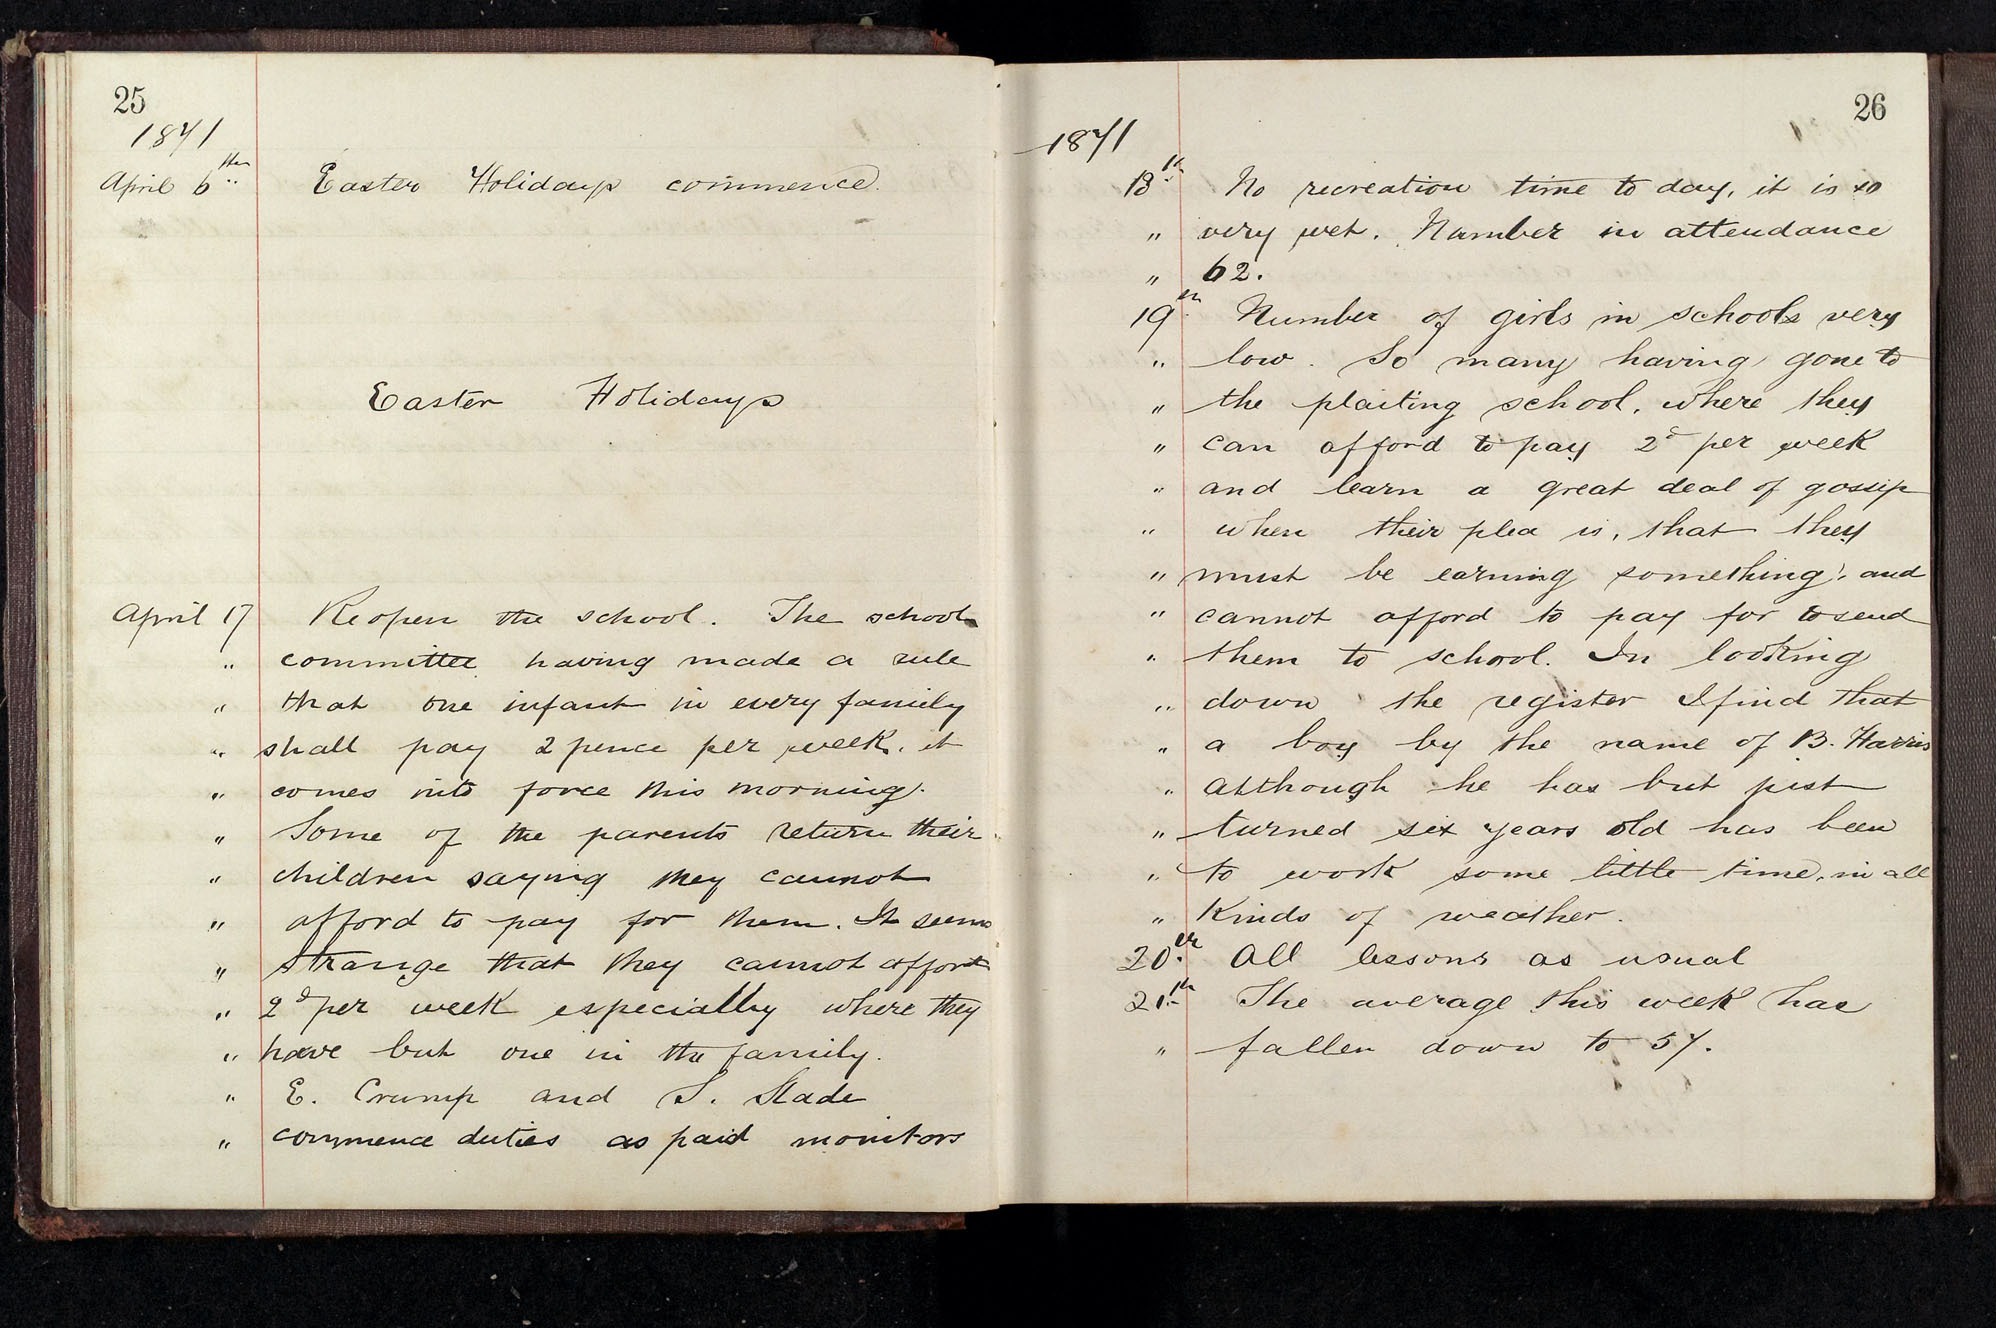 25
1871
April 6th Easter Holidays commence.
Easter Holidays
April 17 Reopen the school. The school
" committee having made a rule
" that one infant in every family
" shall pay 2 pence per week. it
" comes into force this morning.
" Some of the parents return their
" children saying they cannot
" afford to pay for them. It seems
" strange that they cannot afford
" 2d per week especially where they
" have but one in the family.
" E. Crump and S. Slade
" commence duties as paid monitors
26
1871
18th No recreation time to day, it is so
" very wet. Number in attendance
" 62.
19th Number of girls in schools very
" low. So many having gone to
" the plaiting school, where they
" can afford to pay 2d per week
" and learn a great deal of gossip
" when their plea is, that they
" must be earning something, and
" cannot afford to pay for to send
" them to school. In looking
" down the register I find that
" a boy by the name of B. Harris
" although he has but just
" turned six years old has been
" to work some little time, in all
" kinds of weather.
20th All lessons as usual
21th The average this week has
" fallen down to 57.